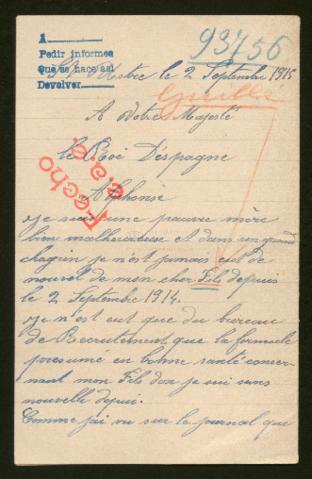 1
Pedir informes
Que se hace así
Devolver
93756
le 2 Septembre 1915
A Votre Majesté
le Roi D'éspagne
Alphonse
Fecho
Je suis une pauvre mère
bien malheureuse et dans un grand
chagrin je n'est jamais eut de
nouvel de mon cher Fils depuis
le 2 Septembre 1914.
Je n'est eut que du bureau
de Recrutement que la formule
presumé en bonne santé concer-
nant mon Fils don je sui sans
nouvelle depui.
Comme j'ai vu sur le journal que